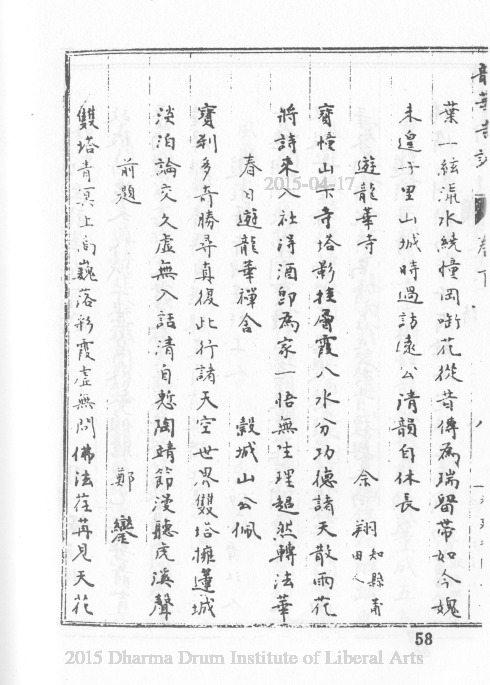 龍華寺誌 卷下 八
葉一絃流水繞幢岡啣花從昔傳為瑞留帶如今媿
未遑千里山城時過訪遠公清韻自休長
遊龍華寺 余翔 知縣莆田人
寶幢山下寺塔影挂層霞八水分功德諸天散雨花
將詩來入社得酒即為家一悟無生理超然轉法華
春日遊龍華禪舍 穀城山公佩
寶刹多奇勝尋真復此行諸天空世界雙塔擁蓮城
淡泊論交久虛無入話清自慙陶靖節漫聽虎溪聲
前題 鄭鑾
雙塔青冥上高巍落彩霞虛無問佛法荏苒見天花
58
2015-04-17
2015 Dharma Drum Institute of Liberal Arts